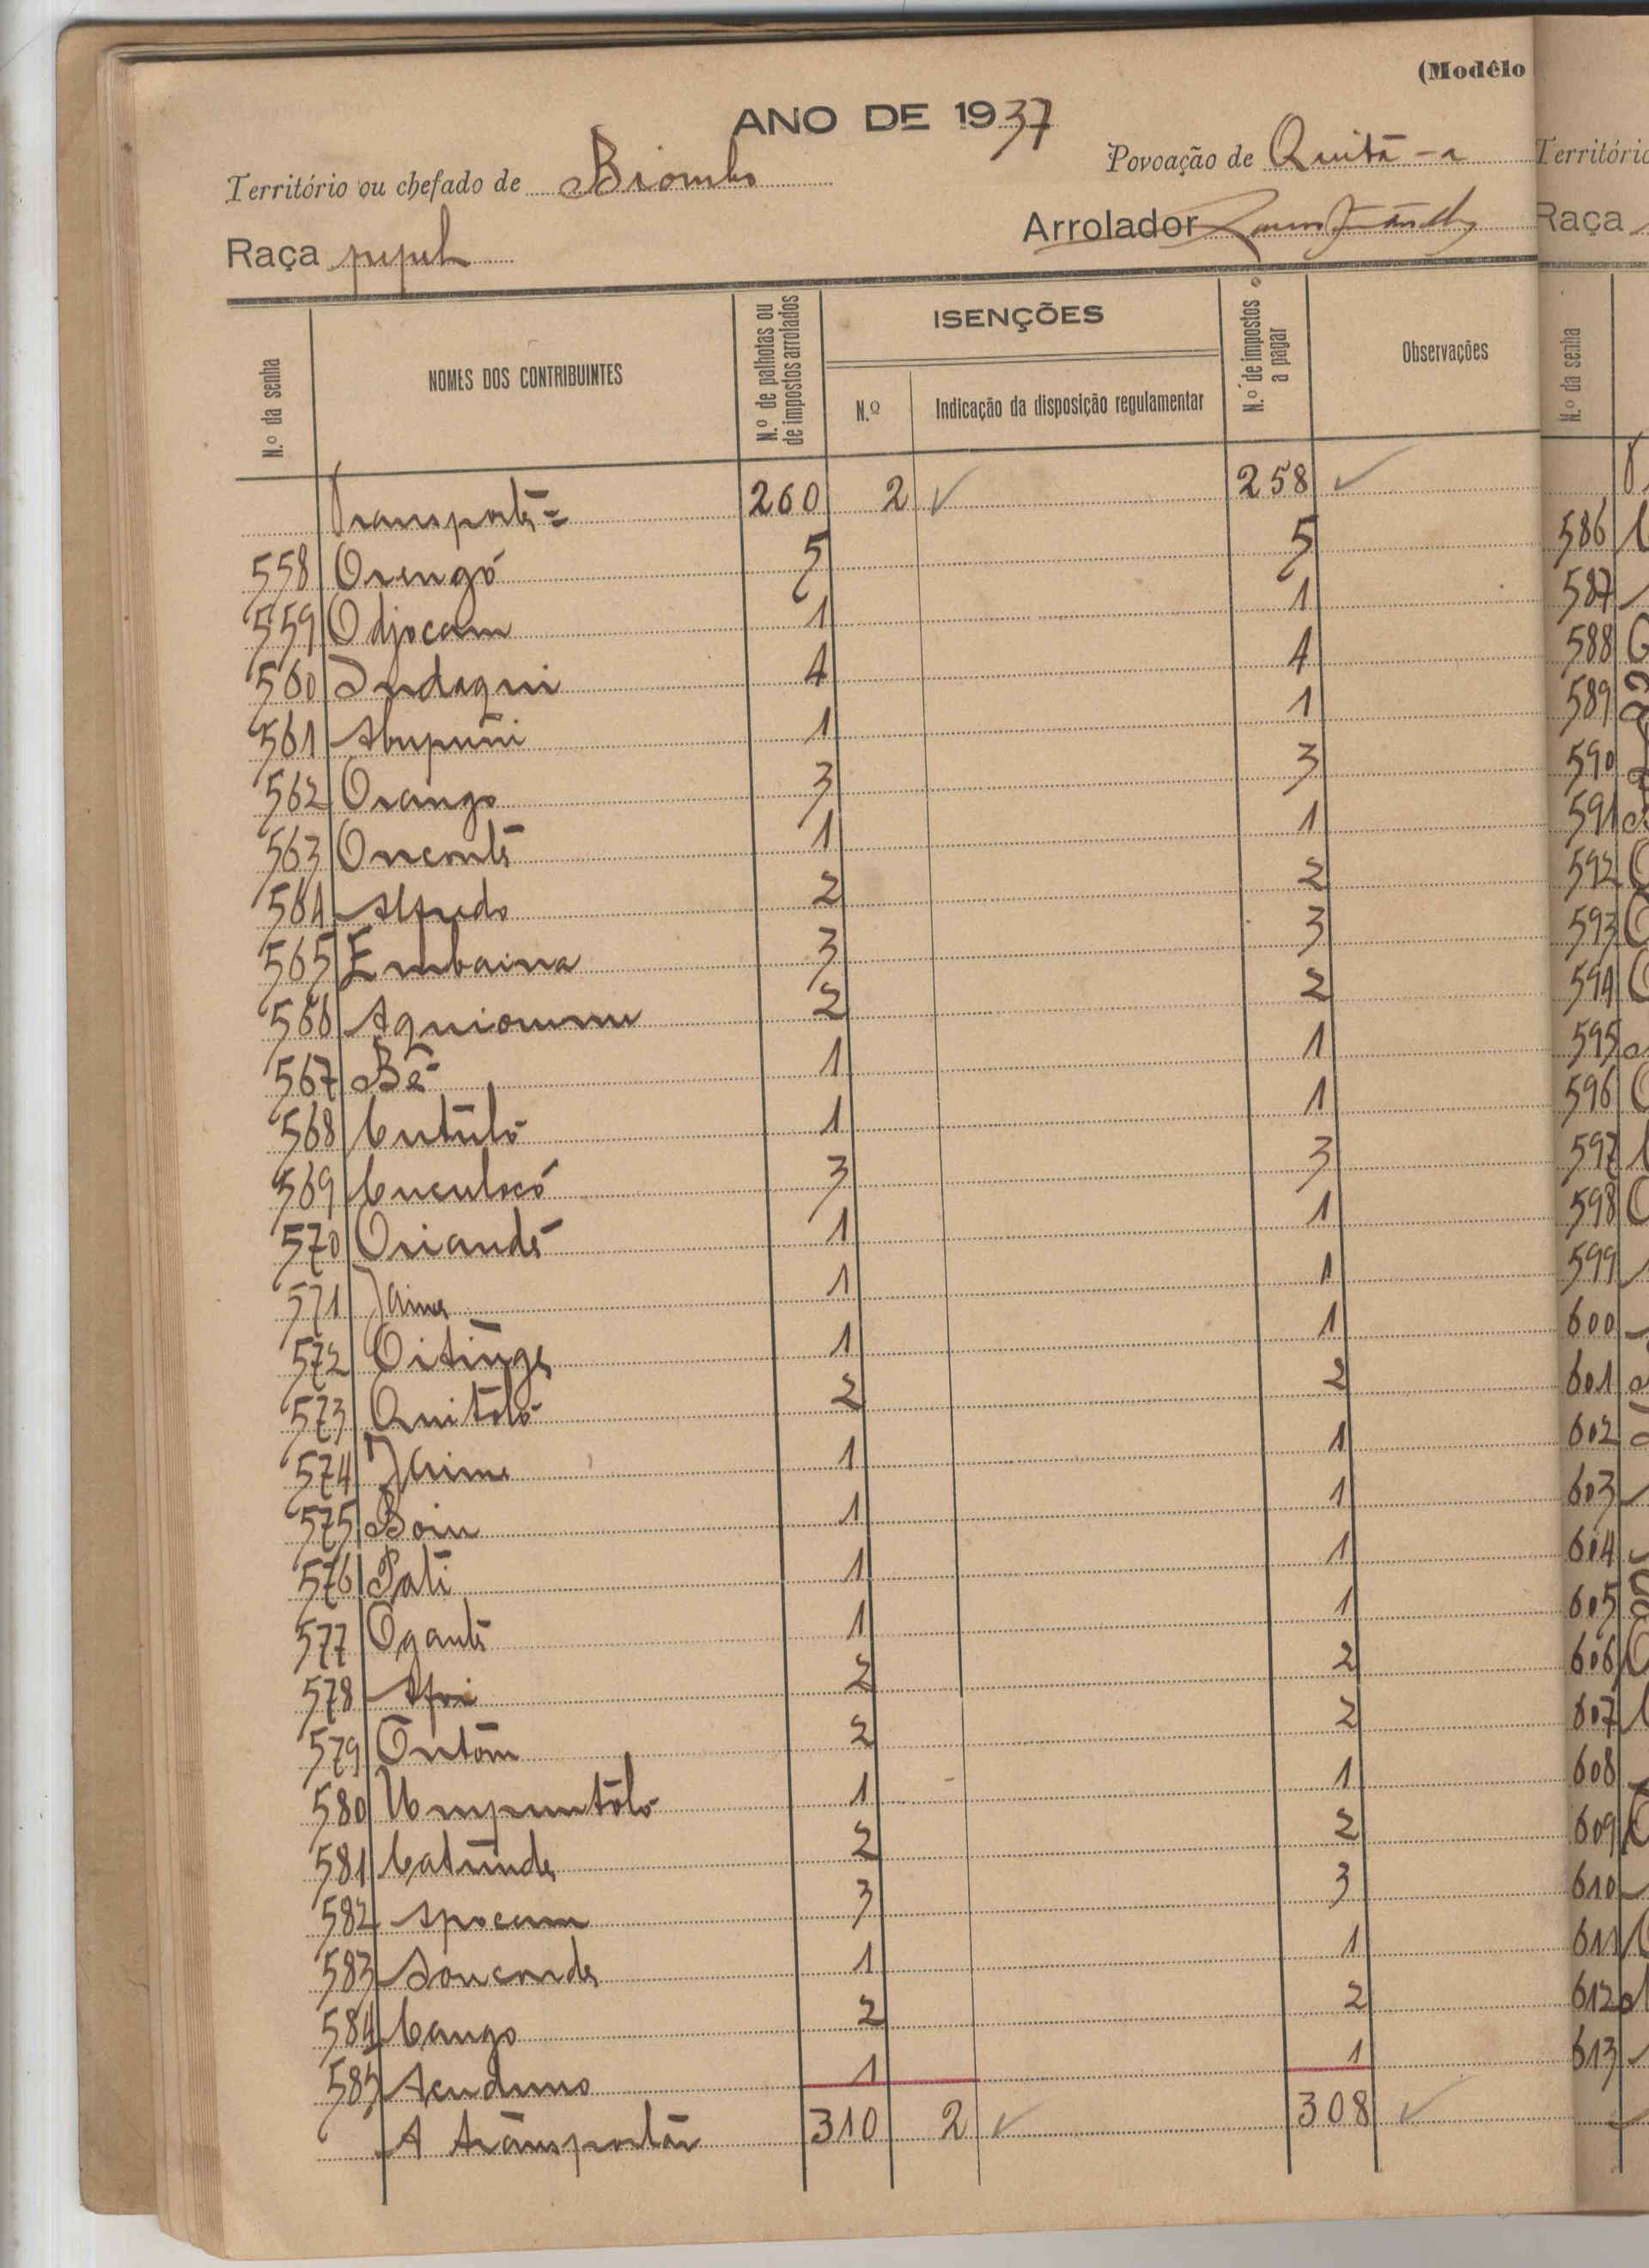 (Modêlo
ANO DE 1937
Território ou chefado de Biombo
Povoação de Quitã-a
Raça papel
Arrolador
N.º da senha
NOMES DOS CONTRIBUINTES
N.º de palhotas ou de impostos arrolados
ISENÇÕES
N.º
Indicação da disposição regulamentar
N.º de impostos a pagar
Observações
Transporte= 260 2 ✓ 258 ✓
558 Orengó 5 5
559 Odjocam 1 1
560 Indaqui 4 4
561 Abupuni 1 1
562 Orango 3 3
563 Onconté 1 1
564 Alfredo 2 2
565 Embaina 3 3
566 2 2
567 Bé 1 1
568 Cutuló 1 1
569 Cuculocó 3 3
570 Oriandé 1 1
571 Jaime 1 1
572 Oitinge 1 1
573 Quitoló 2 2
574 Jaime 1 1
575 Boiu 1 1
576 Pati 1 1
577 Oganté 1 1
578 Afoi 2 2
579 Ontom 2 2
580 Umpuntoló 1 1
581 Catunde 2 2
582 Apocam 3 3
583 Soucunde 1 1
584 Cango 2 2
585 1 1
A transportar 310 2 ✓ 308 ✓
Território
Raça
N.º da senha
586
587
588
589
590
591
592
593
594
595
596
597
598
599
600
601
602
603
604
605
606
607
608
609
610
611
612
613